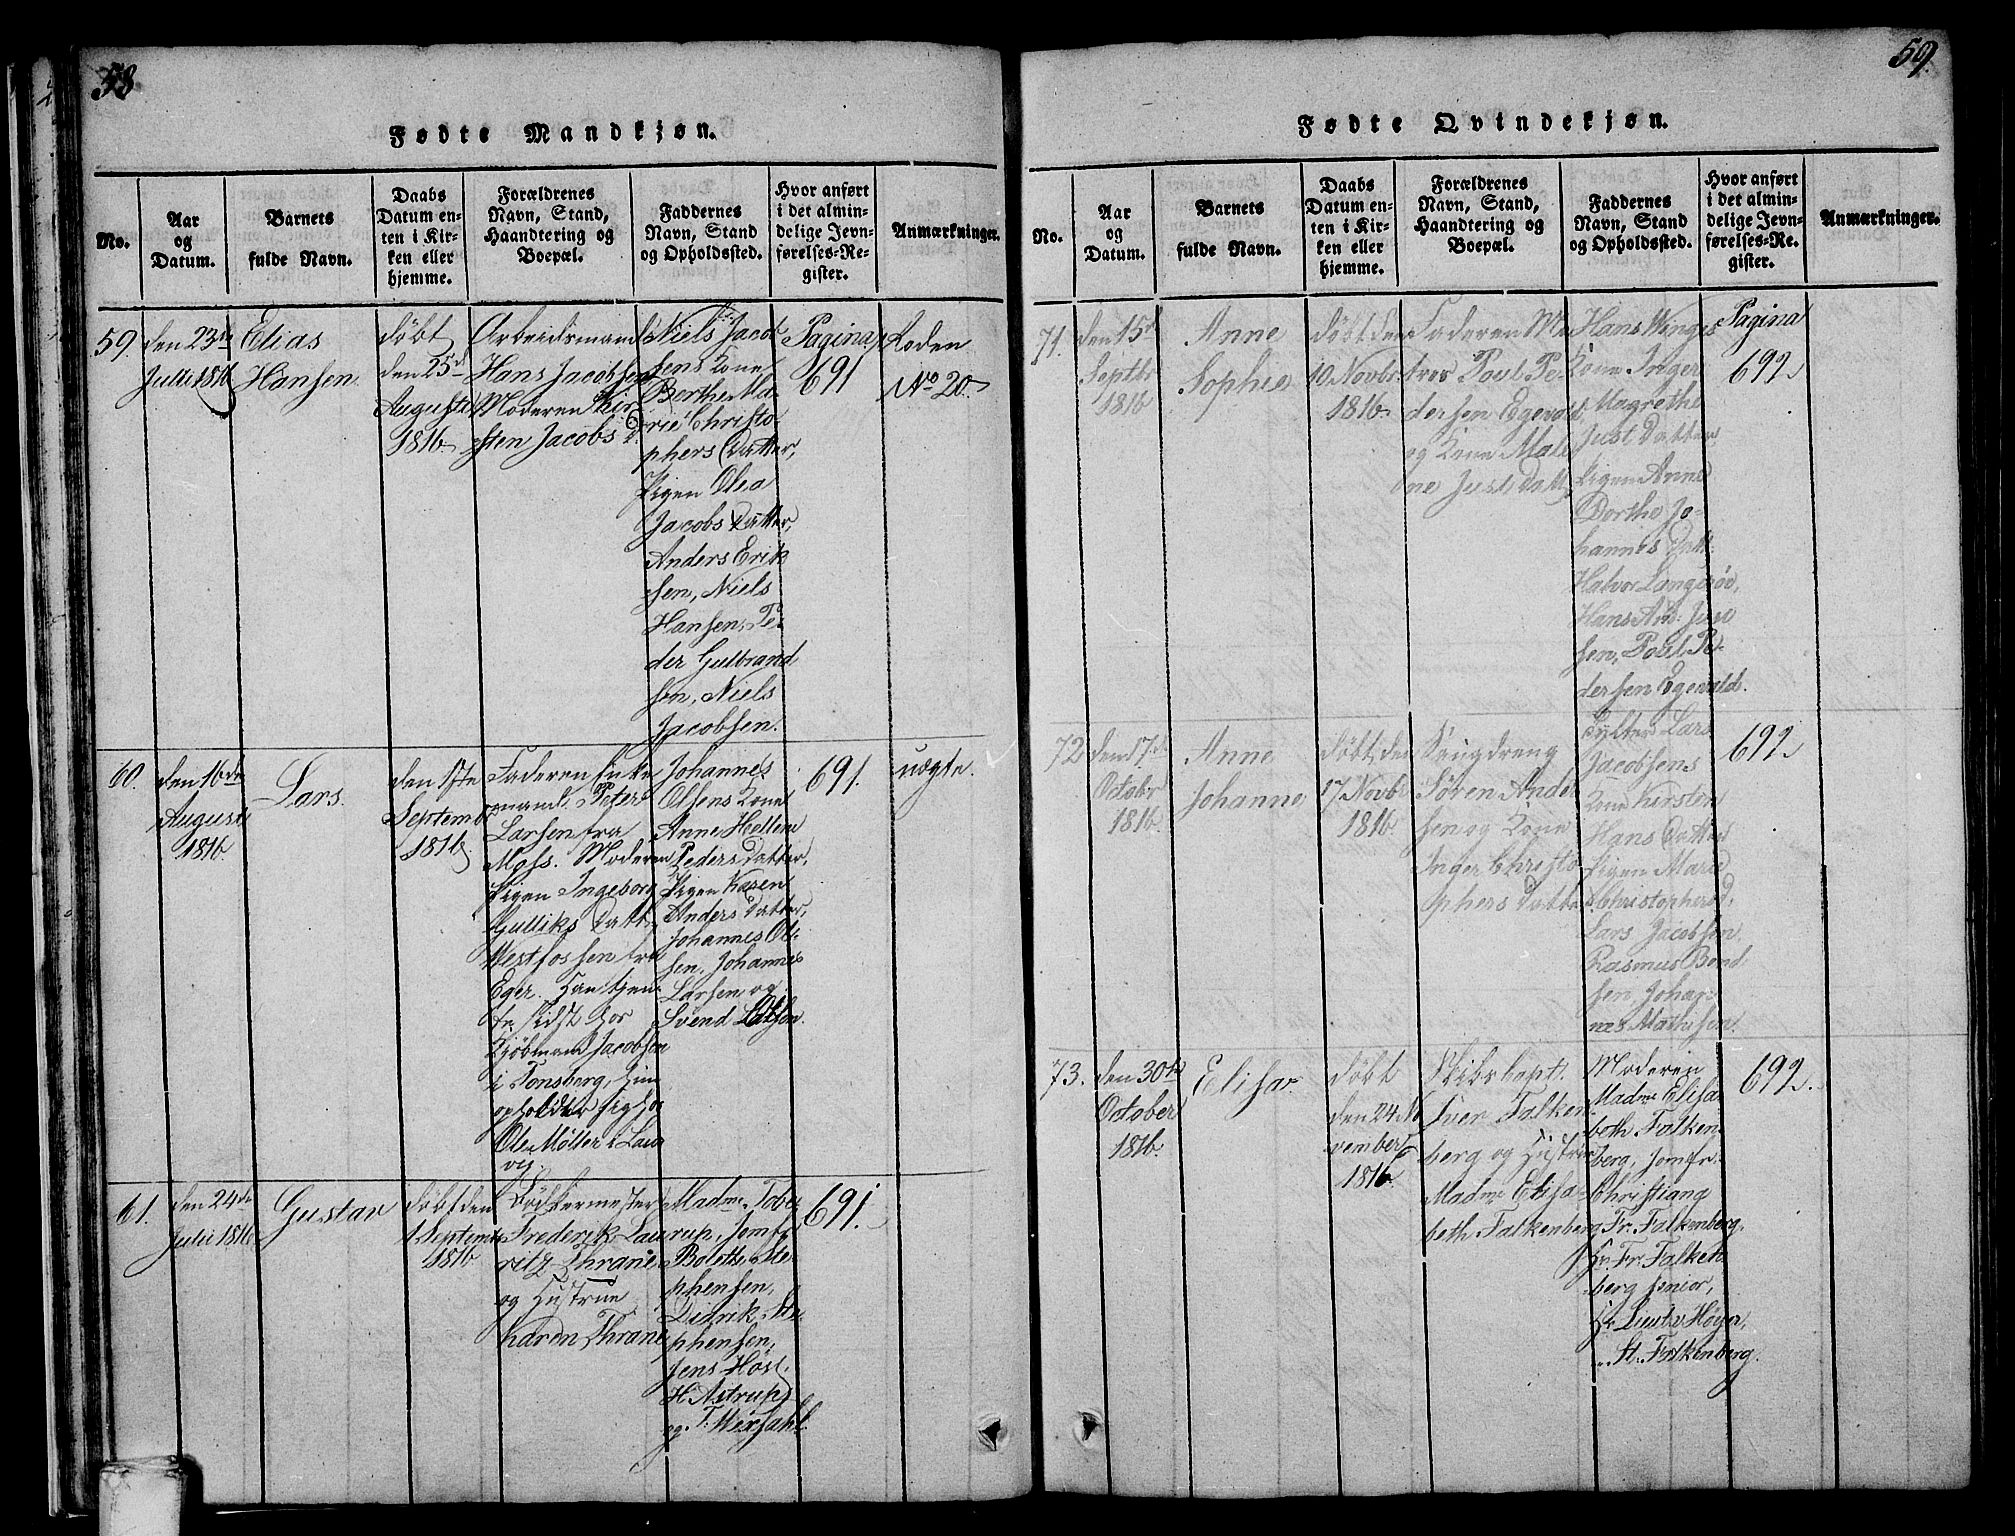 58
Fødte Mandkjøn.
No.
Aar
og
Datum.
Barnets
fulde Navn.
Daabs
Datum en-
ten i Kir-
ken eller
hjemme.
Forældrenes
Navn, Stand,
Haandtering og
Boepæl.
Faddernes
Navn, Stand
og Opholdssted.
Hvor anført
i det almin-
delige Jevn-
førelses-Re-
gister.
Anmærkninger.
59.
den 23de
Julii 1816
Elias
Hansen.
døbt
den 25de
Augusti
1816
Arbeidsmand
Hans Jacobsen
Moderen Kir-
sten Jacobs D.
Niels Jacob
sens Kone
Berthe Ma-
rie Christo-
phers Datter,
Pigen Olea
Jacobs Datter,
Anders Erik
sen, Niels
Hansen, Pe-
der Gulbrand
sen, Niels
Jacobsen.
Pagina
691
Roden
No 20.
60.
den 16de
August
1816.
Lars.
den 1ste
Septemb
1816
Faderen Enke
mand Peter
Larsen fra
Moss. Moderen
Pigen Ingeborg
Gulliks Datt
Westfossen fra
Eger. Han tjen
te sidst hos
Kjøbmand Jacobsen
i Tønsberg, hun
opholder sig hos
Ole Møller i Laur
vig
Johannes
Olsens Kone
Anne Hellene
Peders Datter,
Pigen Karen
Anders Datter,
Johannes Ol-
sen, Johannes
Larsen og
Svend
691.
uægte.
61.
den 24de
Julii 1816
Gustav
døbt den
1 Septemb
1816
Bødkermester
Frederik Lau
ritz Thrane
og Hustrue
Karen Thrane
Madme Tober
rup, Jomfr
Bolette Ste
phensen,
Didrik Ste
phensen,
Jens Høst,
H. Astrup
og T. Wexsahl.
691.
59.
Fødte Qvindekjøn.
No.
Aar
og
Datum.
Barnets
fulde Navn.
Daabs
Datum en-
ten i Kir-
ken eller
hjemme.
Forældrenes
Navn, Stand,
Haandtering og
Boepæl.
Faddernes
Navn, Stand
og Opholdssted.
Hvor anført
i det almin-
delige Jevn-
førelses-Re-
gister.
Anmærkninger.
71.
den 15de
Septbr
1816
Anne
Sophie
døbt den
10 Novbr
1816
Faderen Ma
tros Poul Pe-
dersen Egevold
og Kone Male
ne Justs Datt
Hans Winges
Kone Inger
Magrethe
Just Datter
Pigen Anne
Dorthe Jo-
hannes Datt.
Halvor Langerød,
Hans And. Juse
sen, Poul Pe-
dersen Egevold.
Pagina
692
72
den 17de
Octobr
1816.
Anne
Johanne
døbt den
17 Novbr
1816
Saugdreng
Søren Ander
sen og Kone
Inger Christo
phers Datter
Lars
Jacobsens
Kone Kirsten
Hans Datter
Pigen Maria
Christophers D,
Lars Jacobsen
Rasmus Bend
sen, Johan-
nes Mathisen.
692
73.
den 30te
October
1816.
Elisa
døbt
den 24 No
vember
1816.
Skibs Capt.
Iver Falken
berg og Hustrue
Madme Elisa-
beth Falkenberg
Moderen
Madme Elisa
beth Falken
berg, Jomfr.
Christiane
Fr. Falkenberg,
Hr. Fr. Falken
berg senior,
Hr Lieut. v Høyer,
St. Falkenberg.
692.